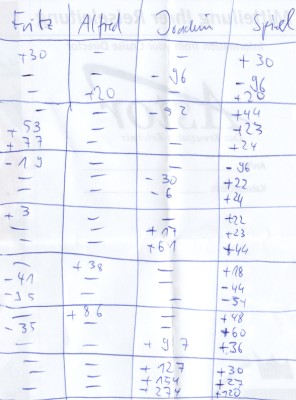 Fritz Alfred Joachim Spiel
+30 — — +30
— — -96 -96
— +20 — +20
— — -92 +44
+53 — — +23
+77 — — +24
-19 — — -96
— — -30 +22
— — -6 +24
+3 — — +22
— — +17 +23
— — +61 +44
— +38 — +18
-41 — — -44
-95 — — -54
— +86 — +48
-35 — — +60
— — +97 +36
— — +127 +30
— — +154 +27
— — +274 +120